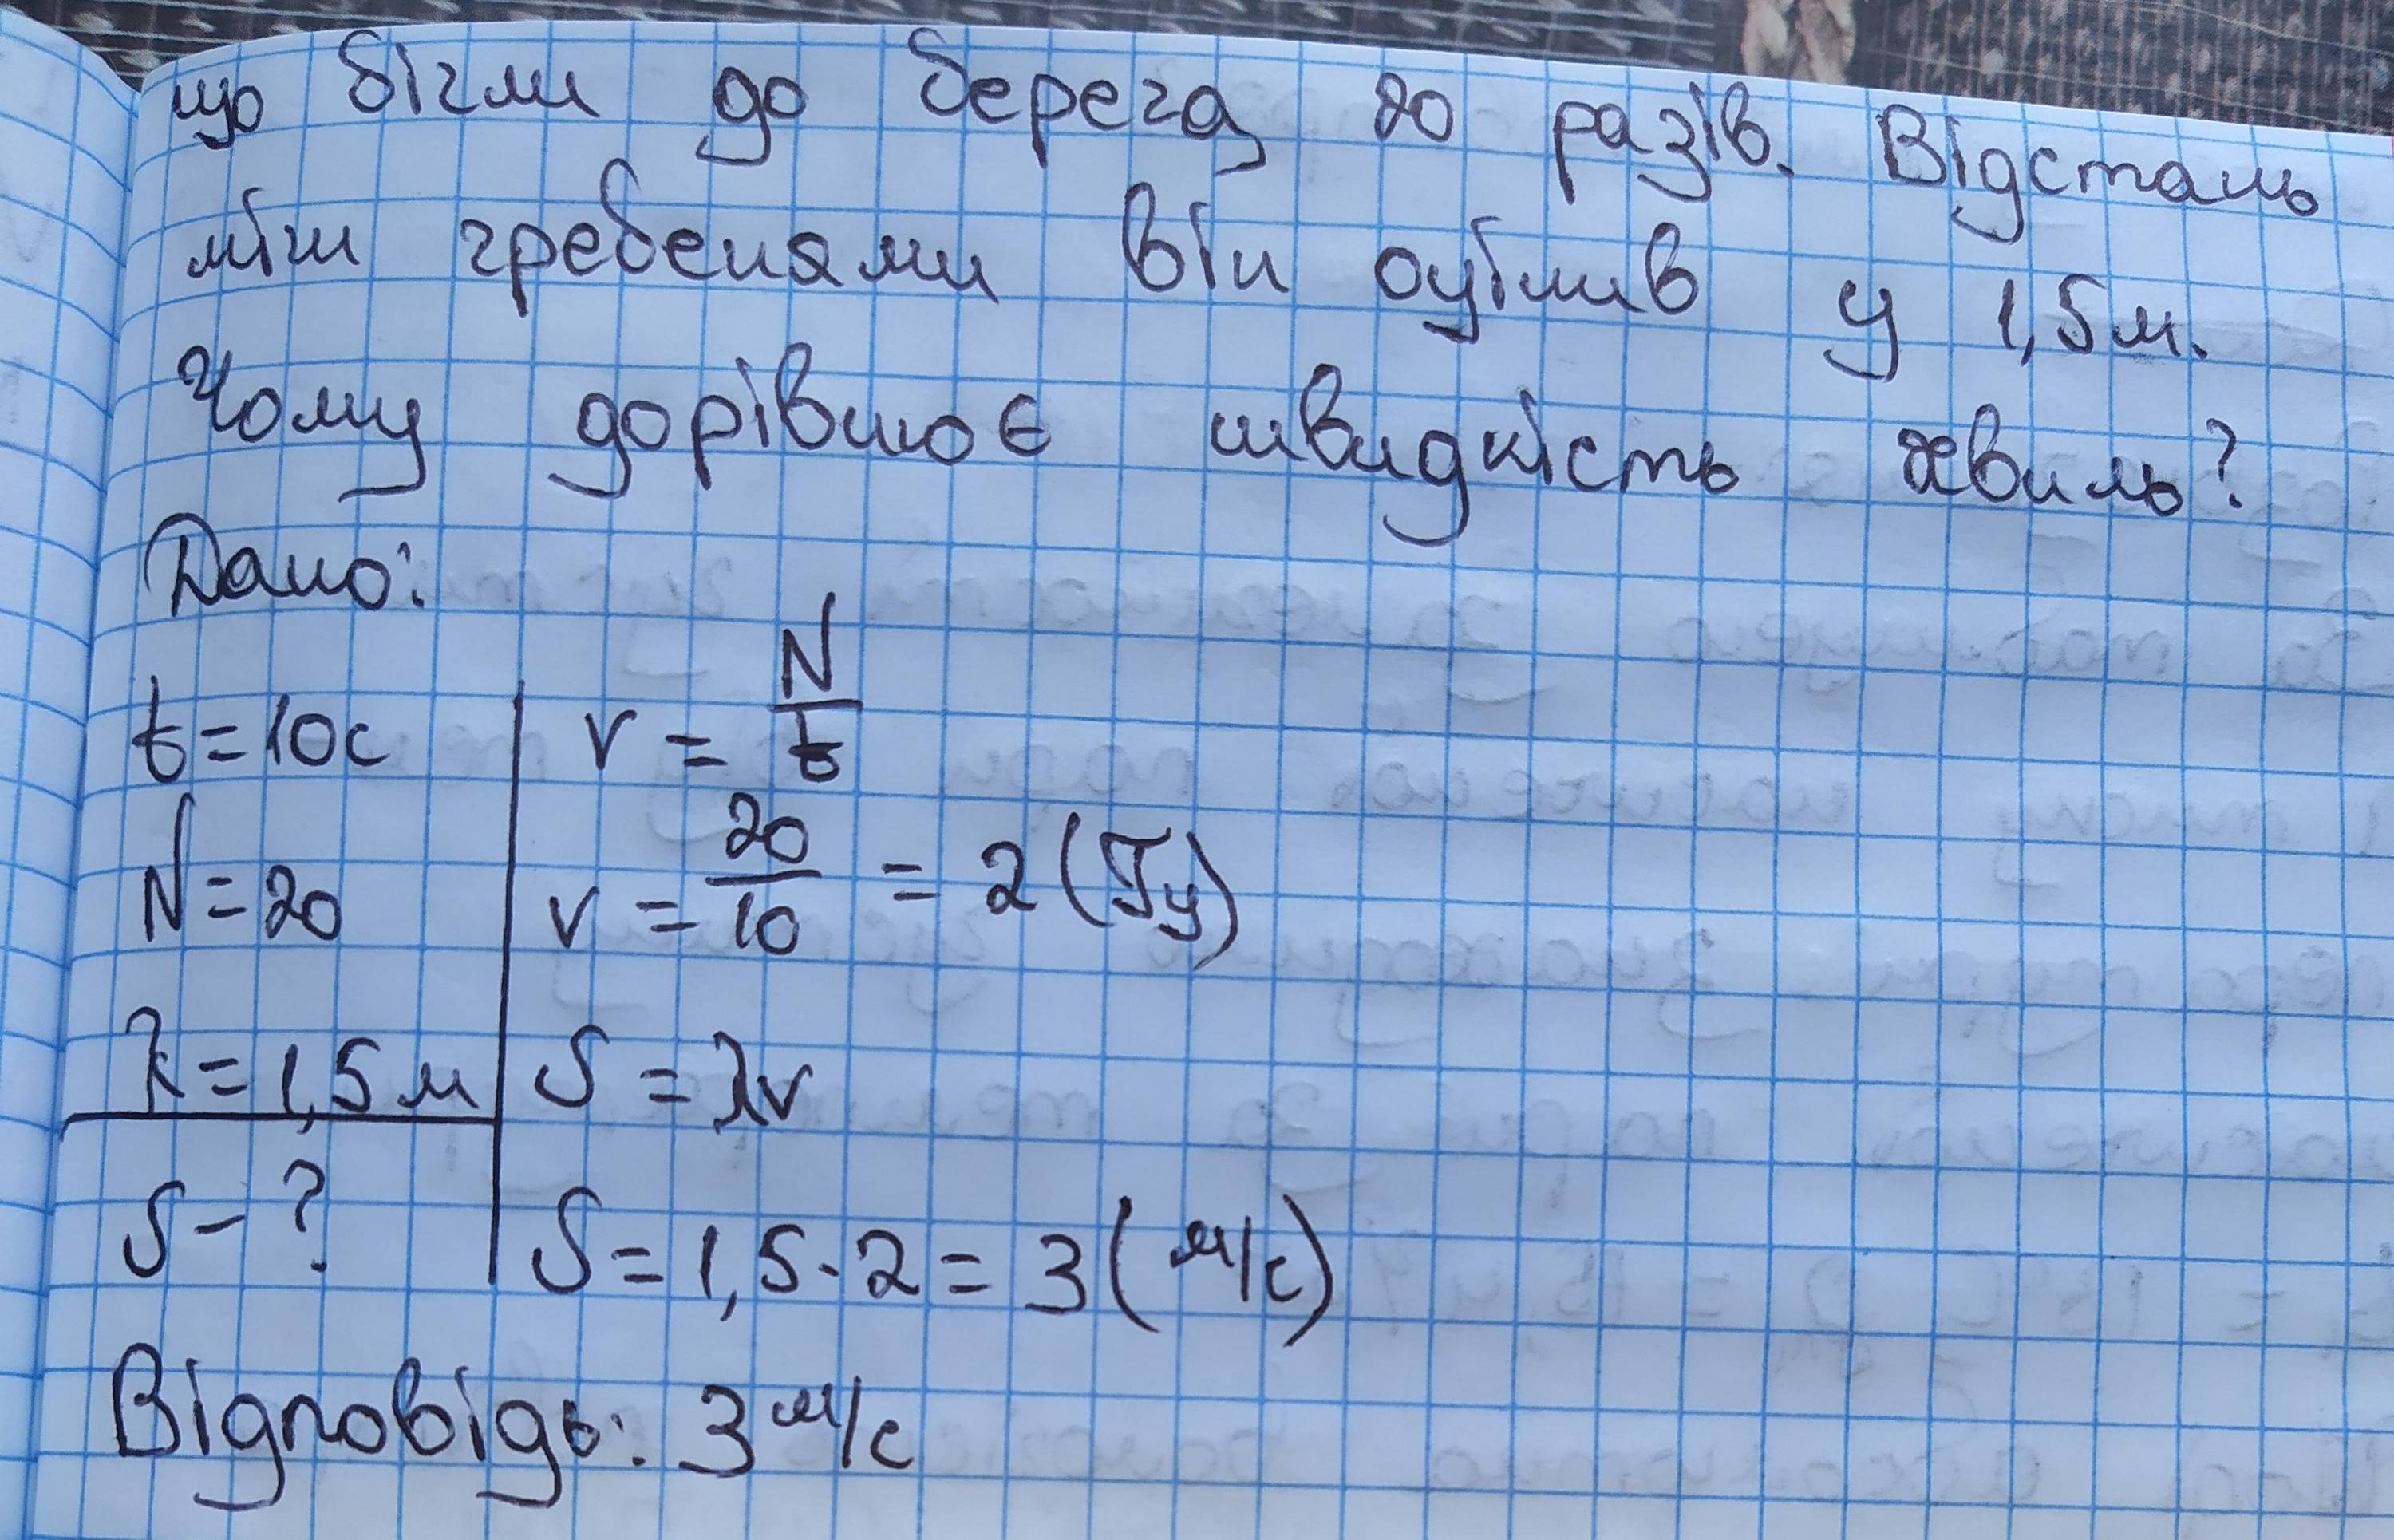 що бігли до берега, 20 разів. Відстань
між гребенями він оцінив у 1,5 м.
Чому дорівнює швидкість хвиль?
Дано:
t = 10 с
N = 20
λ = 1,5 м
S - ?
v = N/t
v = 20/10 = 2 (Гц)
S = λv
S = 1,5 · 2 = 3 (м/с)
Відповідь: 3 м/с